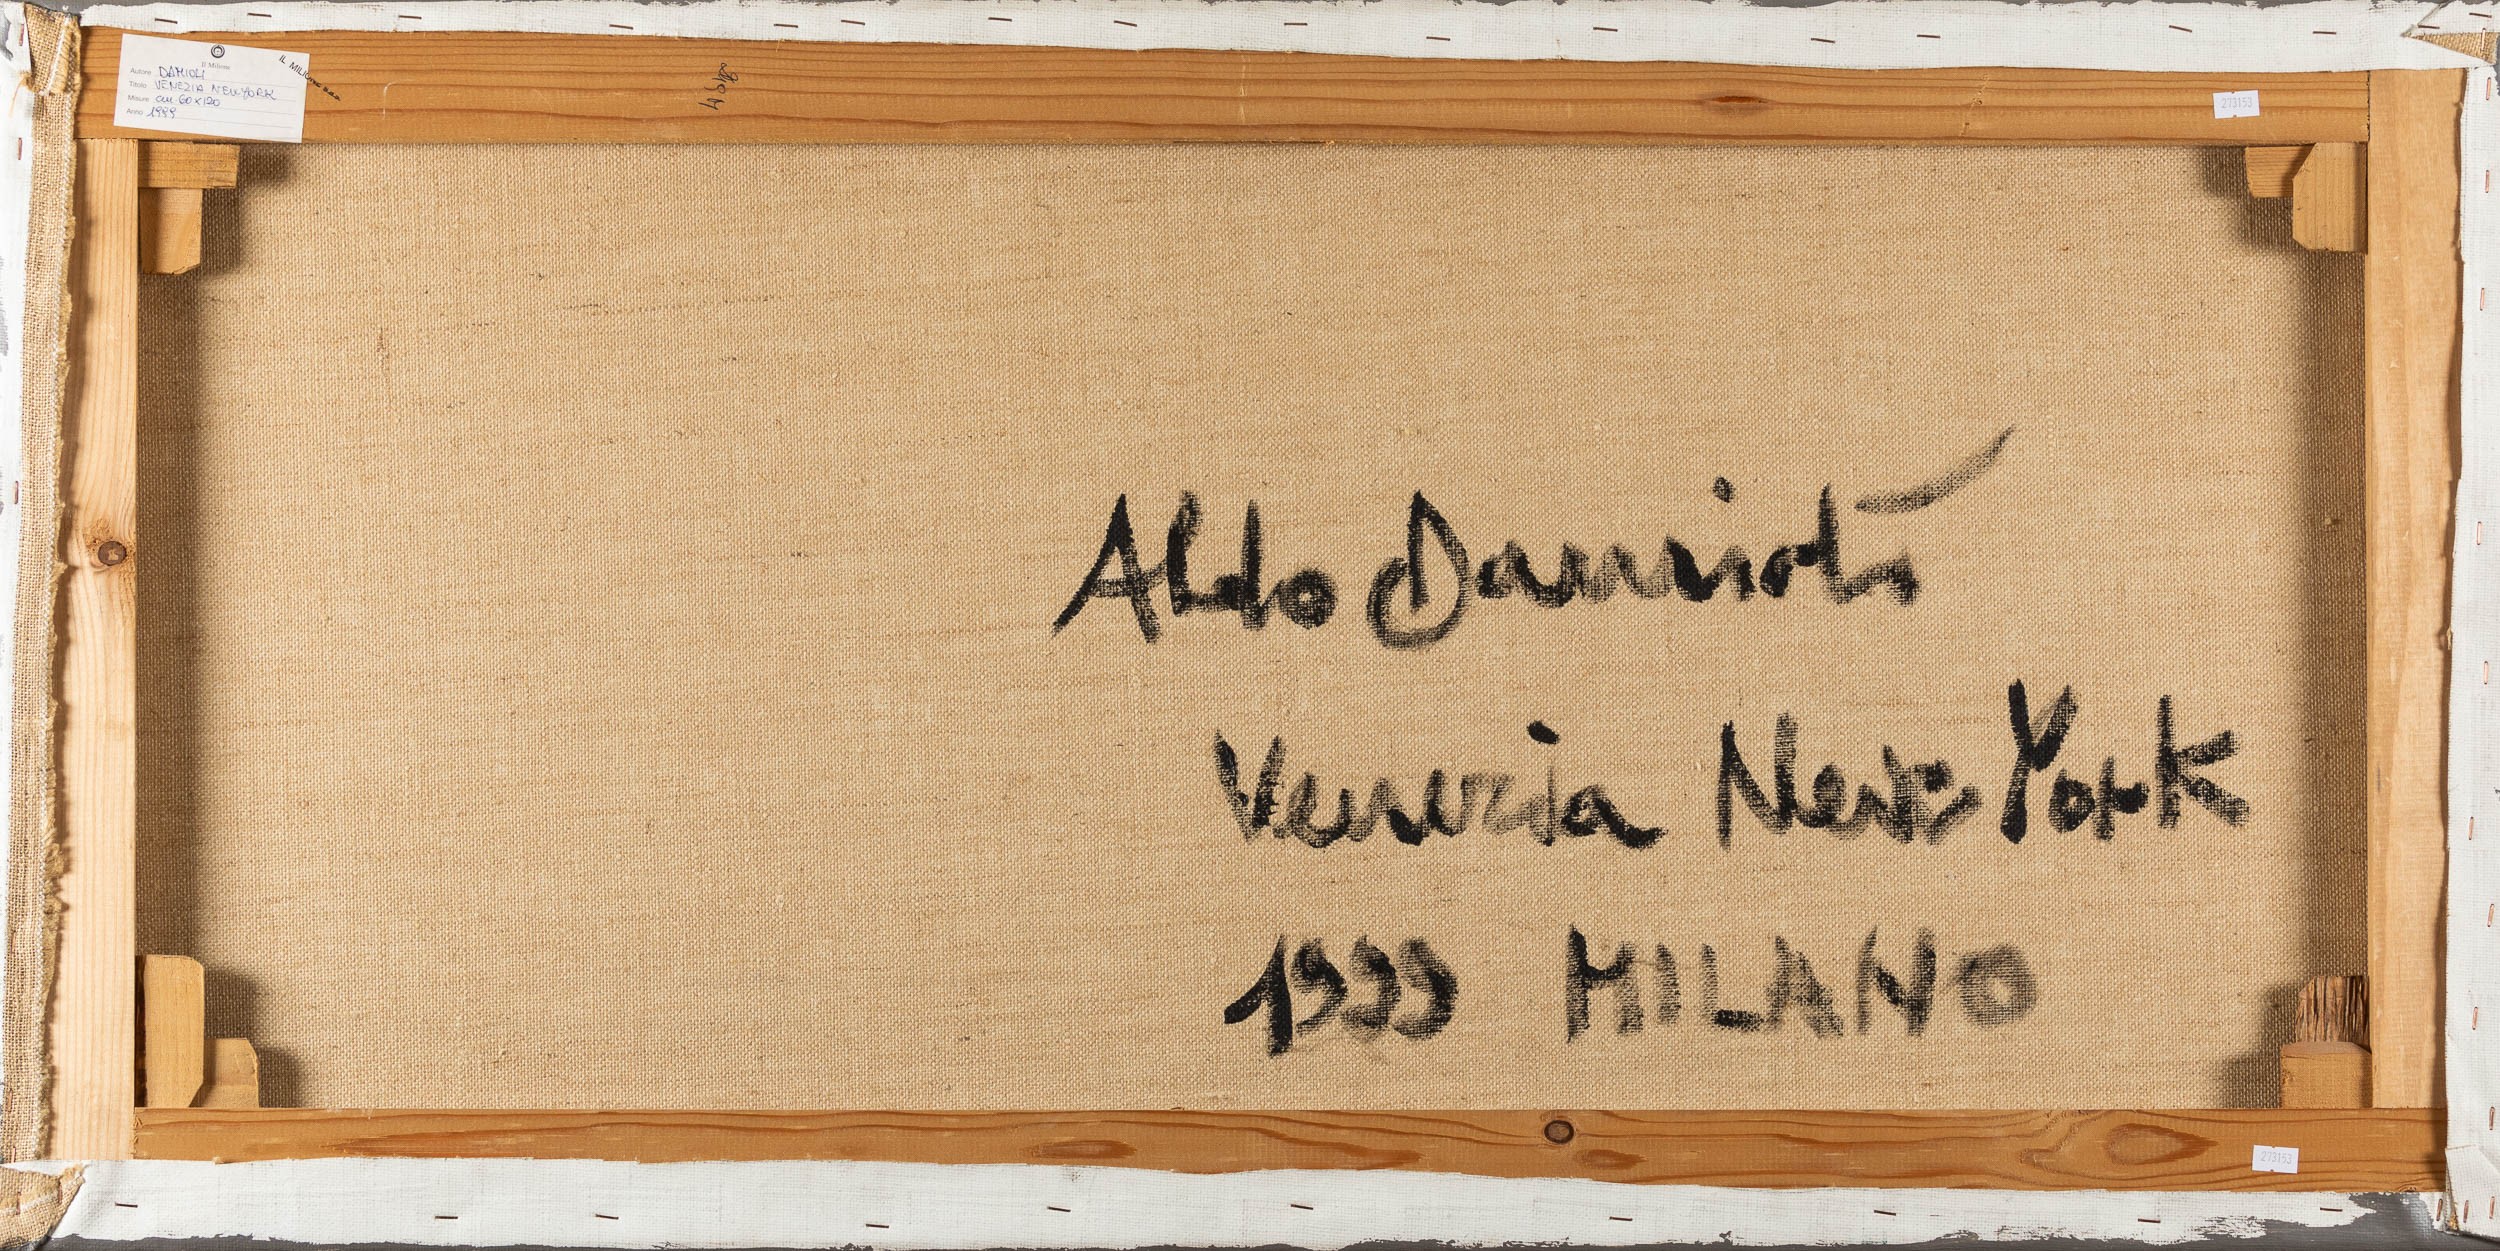 Il Milione
Autore DAMIOLI
Titolo VENEZIA NEW YORK
Misure cm 60x120
Anno 1999
IL MILIONE
273153
Aldo Damioli
Venezia New York
1999 MILANO
273153